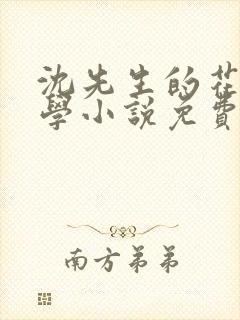 沈先生的
學小説免費
南方弟弟